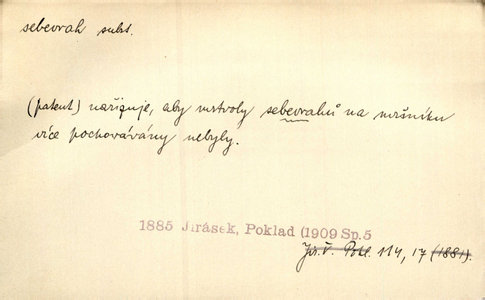 sebevrah subst.
(patent) nařizuje, aby mrtvoly sebevrahů na mršníku
více pochovávány nebyly.
1885 Jirásek, Poklad (1909 Sp.5
Jir. V. Pokl. 114, 17 (1881).